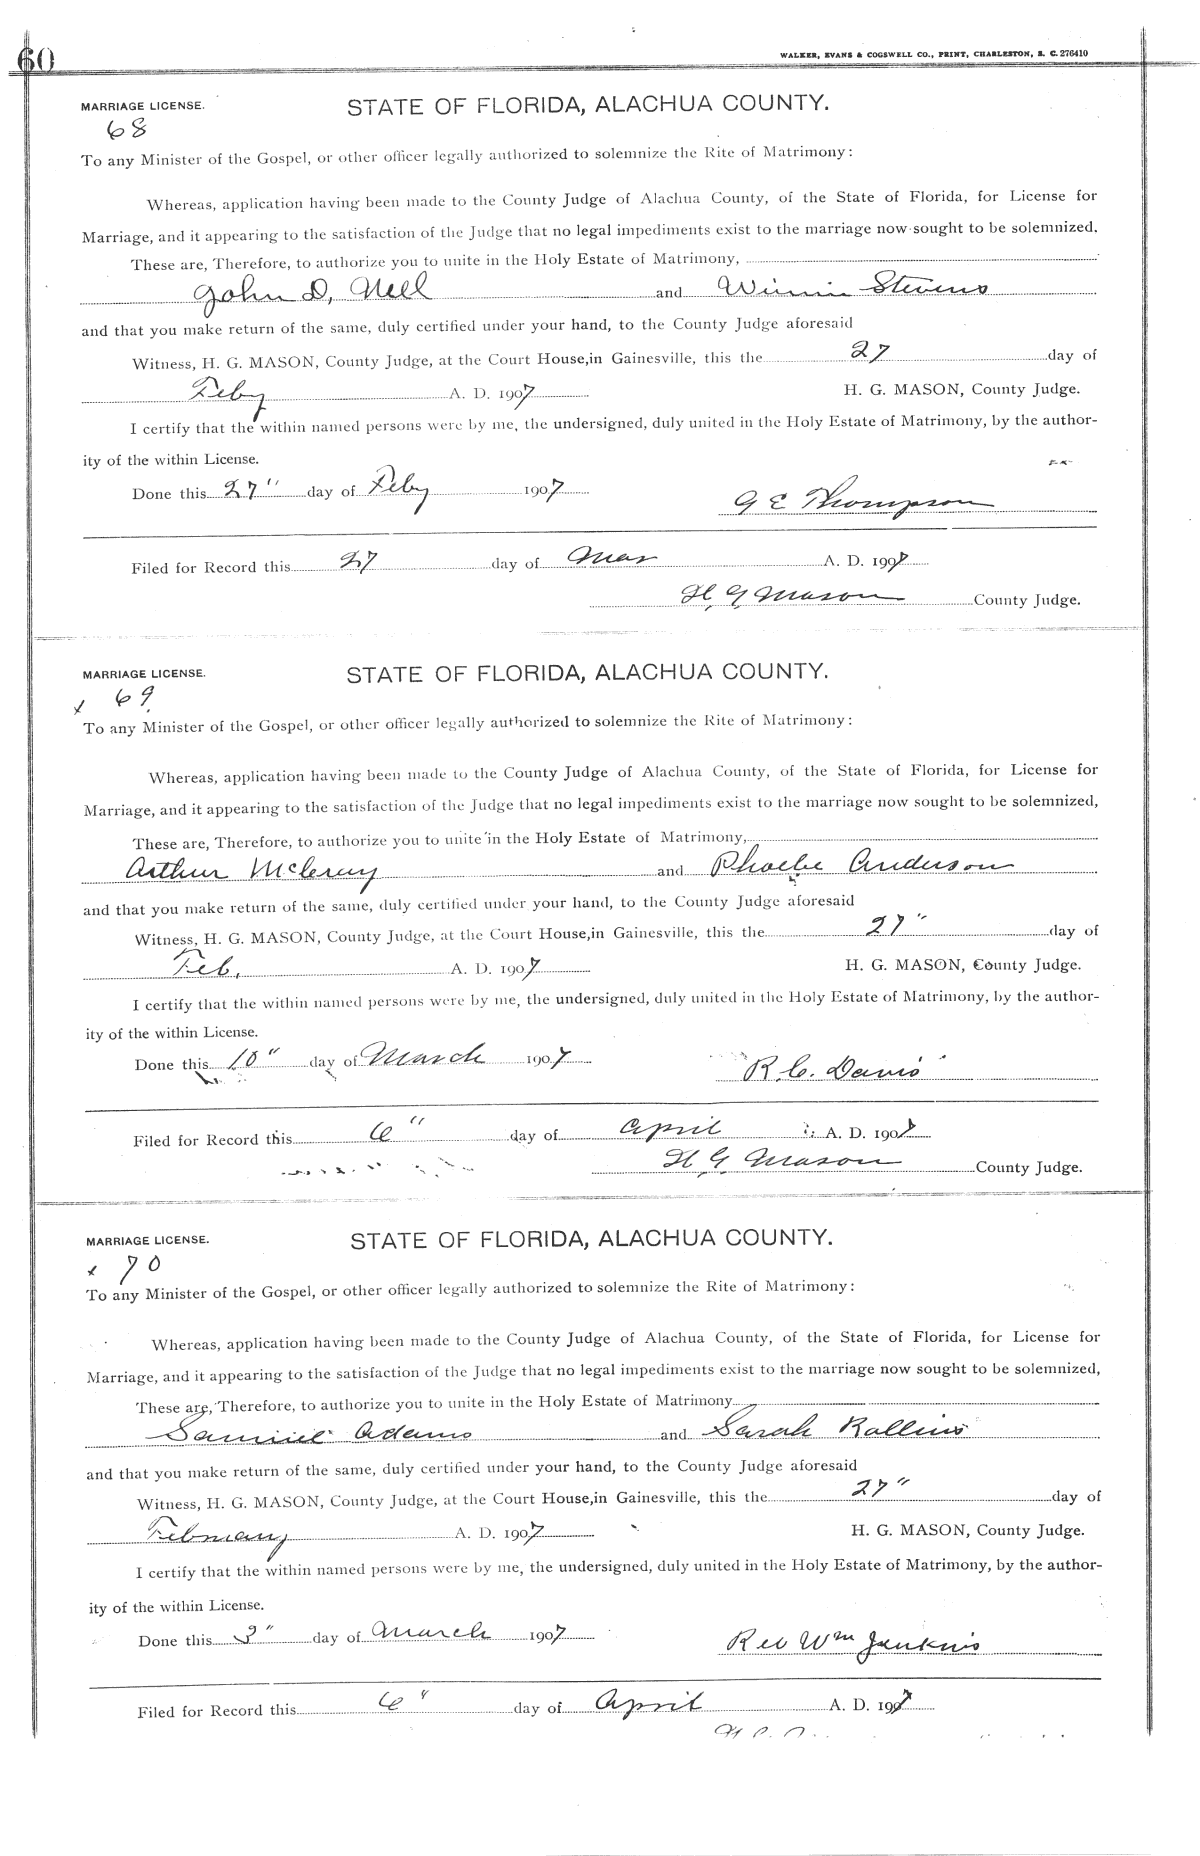 60
WALKER, EVANS & COGSWELL CO., PRINT, CHARLESTON, S. C. 276410
MARRIAGE LICENSE. STATE OF FLORIDA, ALACHUA COUNTY.
68
To any Minister of the Gospel, or other officer legally authorized to solemnize the Rite of Matrimony:
Whereas, application having been made to the County Judge of Alachua County, of the State of Florida, for License for
Marriage, and it appearing to the satisfaction of the Judge that no legal impediments exist to the marriage now sought to be solemnized.
These are, Therefore, to authorize you to unite in the Holy Estate of Matrimony,
John D. Nell and Winnie Stevens
and that you make return of the same, duly certified under your hand, to the County Judge aforesaid
Witness, H. G. MASON, County Judge, at the Court House, in Gainesville, this the 27 day of
Feby A. D. 1907 H. G. MASON, County Judge.
I certify that the within named persons were by me, the undersigned, duly united in the Holy Estate of Matrimony, by the author-
ity of the within License.
Done this 27" day of Feby 1907 G E Thompson
Filed for Record this 27 day of Mar A. D. 1907
H. G. Mason County Judge.
MARRIAGE LICENSE. STATE OF FLORIDA, ALACHUA COUNTY.
x 69
To any Minister of the Gospel, or other officer legally authorized to solemnize the Rite of Matrimony:
Whereas, application having been made to the County Judge of Alachua County, of the State of Florida, for License for
Marriage, and it appearing to the satisfaction of the Judge that no legal impediments exist to the marriage now sought to be solemnized,
These are, Therefore, to authorize you to unite in the Holy Estate of Matrimony,
Arthur and Phoebe Anderson
and that you make return of the same, duly certified under your hand, to the County Judge aforesaid
Witness, H. G. MASON, County Judge, at the Court House, in Gainesville, this the 27" day of
Feb. A. D. 1907 H. G. MASON, County Judge.
I certify that the within named persons were by me, the undersigned, duly united in the Holy Estate of Matrimony, by the author-
ity of the within License.
Done this 10" day of March 1907 R. C. Davis
Filed for Record this 6" day of April A. D. 1907
H. G. Mason County Judge.
MARRIAGE LICENSE. STATE OF FLORIDA, ALACHUA COUNTY.
x 70
To any Minister of the Gospel, or other officer legally authorized to solemnize the Rite of Matrimony:
Whereas, application having been made to the County Judge of Alachua County, of the State of Florida, for License for
Marriage, and it appearing to the satisfaction of the Judge that no legal impediments exist to the marriage now sought to be solemnized,
These are, Therefore, to authorize you to unite in the Holy Estate of Matrimony
Samuel Adams and Sarah Rollins
and that you make return of the same, duly certified under your hand, to the County Judge aforesaid
Witness, H. G. MASON, County Judge, at the Court House, in Gainesville, this the 27" day of
February A. D. 1907 H. G. MASON, County Judge.
I certify that the within named persons were by me, the undersigned, duly united in the Holy Estate of Matrimony, by the author-
ity of the within License.
Done this 3" day of March 1907 Rev Wm Jenkins
Filed for Record this 6" day of April A. D. 1907